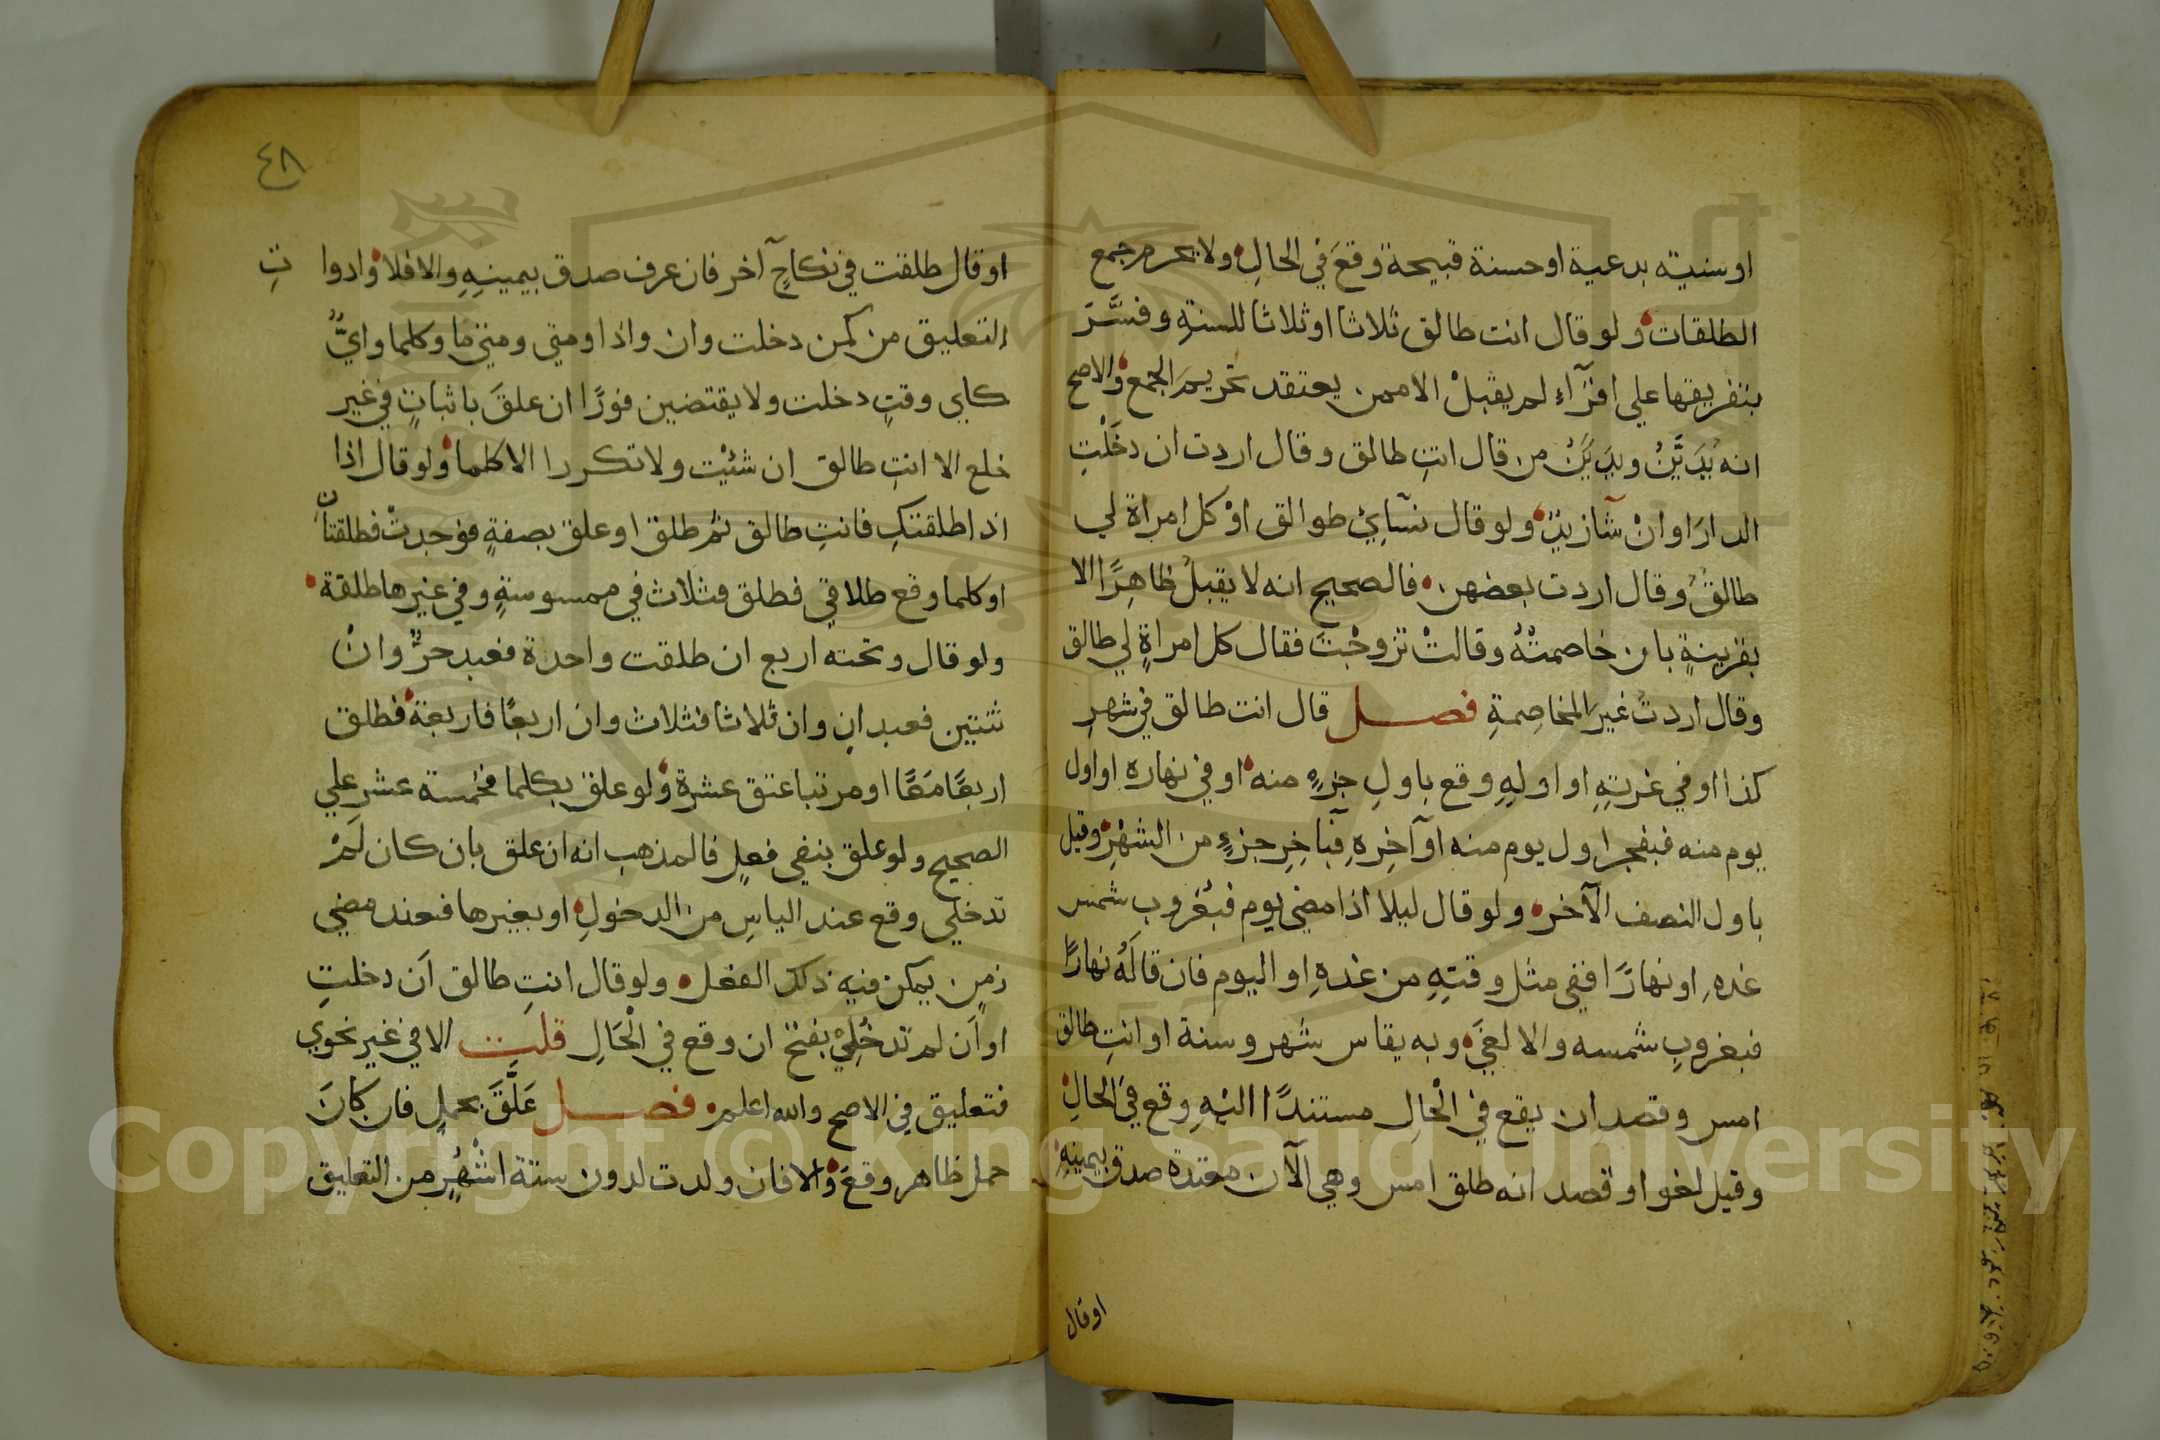 او سنيته بدعية او حسنة قبيحة وقعَ في الحالِ ولا يحرم جمع
الطلقات ولو قال انت طالق ثلاثا او ثلاثا للسنةِ وفسَّرَ
بتفريقها علي اقرَآءٍ لم يقبلْ الا ممن يعتقد تحريمَ الجمع والاصح
انه يُدَيَّنُ ويدَيَّنُ من قال انتِ طالق وقال اردت ان دخَلْتِ
الدارَ او انْ شآ زيدٌ ولو قال نسَآيِيْ طوالق اوْ كل امراة لي
طالقٌ وقال اردت بعضهن فالصحيح انه لا يقبلُ ظاهِرًا الا
بقرينةٍ بان خاصمتْهُ وقالتْ تزوجْتَ فقال كل امراةٍ لي طالق
وقال اردتُ غيرَ المخاصِمةِ فصل قال انت طالق في شهرِ
كذا او في غرتِهِ او اولِهِ وقع باولِ جزءٍ منه او في نهاره او اول
يوم منه فبفجر اول يوم منه او آخِرِهِ فبآخِرِ جزءٍ من الشهْرِ وقيل
باول النصف الآخر ولو قال ليلا اذا مضي يوم فبُغروب شمس
غدهِ او نهارًا ففي مثل وقتِهِ من غدهِ او اليوم فان قالَهُ نهارًا
فبغروبِ شمسه والا لغيَ وبه يقاس شهر وسنة او انتِ طالق
امس وقصد ان يقع في الْحَالِ مستندًا اليْهِ وقع في الحالِ
وقيل لغو او قصد انه طلق امس وهي الآن معتدة صدق بيمينِهِ
او قال
٤٨
او قال طلقت في نكاحٍ آخر فان عرف صدق بيمينِهِ والا فلا وادوا تِ
التعليق من كمن دخلت وان واذا ومتي ومتي ما وكلما وايُّ
كاي وقتٍ دخلت ولا يقتضين فورًا ان علقَ باثباتٍ في غير
خلع الا انتِ طالق ان شئْت ولا تكررا الا كلما ولو قال اذا
اذا طلقتكِ فانتِ طالق ثم طلق او علق بصفةٍ فوجدتْ فطلقتانِ
او كلما وقع طلاقي فطلق فثلاث في ممسوسةٍ وفي غيرها طلقة
ولو قال وتحته اربع ان طلقت واحدة فعبد حرٌّ وانْ
ثنتين فعبدانِ وان ثلاثا فثلاث وان اربعًا فاربعة فطلق
اربعًا مَعًا او مرتبا عتق عشرة ولو علق بكلما فخمسة عشر علي
الصحيح ولو علق بنفي فعلٍ فالمذهب انه ان علق بان كان لَمْ
تدخلي وقع عند الياسِ من الدخولِ او بغيرها فعند مضي
زمنٍ يمكن فيه ذلك الفعل ولو قال انتِ طالق اَن دخلتِ
او اَن لم تدخُلِيْ بفتح ان وقع في الْحَالِ قلت الا في غير نحوي
فتعليق في الاصح والله اعلم فصل عَلَّقَ بحملٍ فان كانَ
حمل ظاهر وقعَ والا فان ولدت لدون ستة اشْهُرٍ من التعليق